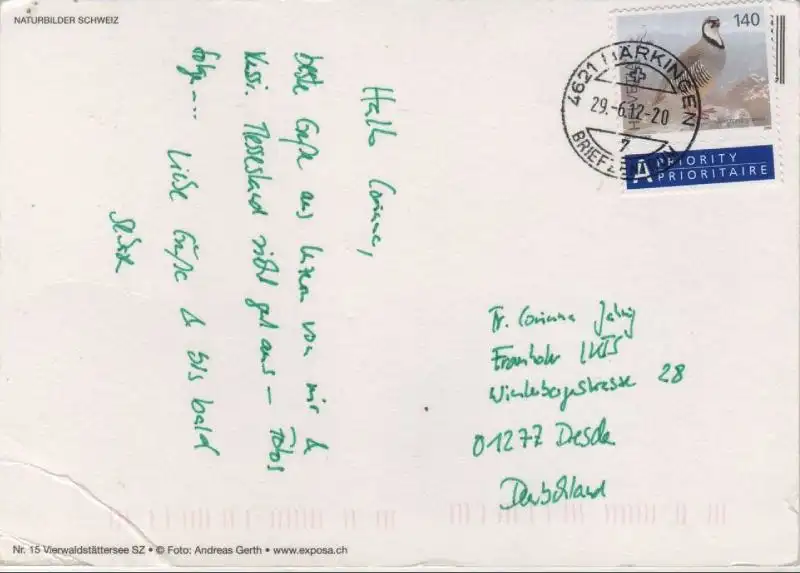 NATURBILDER SCHWEIZ
140
HELVETIA
4621 HÄRKINGEN
29.-6.12-20
7
BRIEFZENTRUM
A PRIORITY
PRIORITAIRE
Hallo Corinna,
beste Grüße aus Luzern von mir &
Kassi. Messestand sieht gut aus – Fotos
folgen...
Liebe Grüße & bis bald
Fr. Corinna Jahnig
Fraunhofer IKTS
Winterbergstrasse 28
01277 Dresden
Deutschland
Nr. 15 Vierwaldstättersee SZ • © Foto: Andreas Gerth • www.exposa.ch